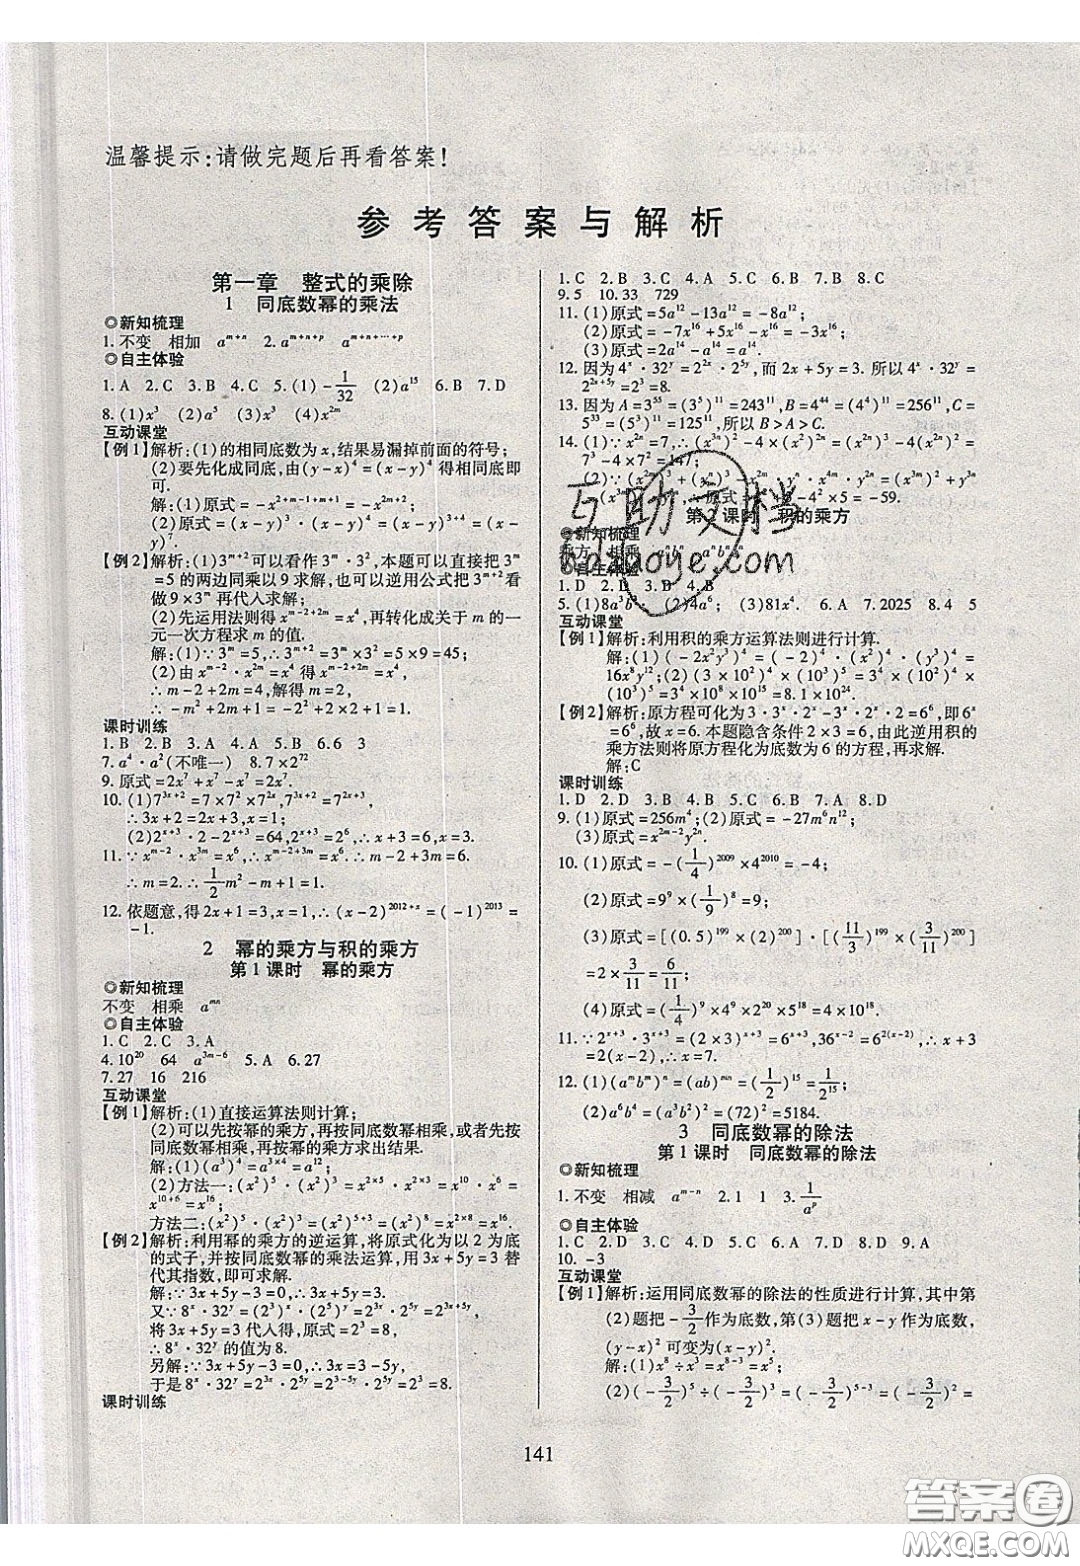 温馨提示:请做完题后再看答案!
参考答案与解析
第一章 整式的乘除
1 同底数幂的乘法
◎新知梳理
1. 不变 相加 a^{m+n} 2. a^{m+n+p} a^{m+n+…+p}
◎自主体验
1. A 2. C 3. B 4. C 5. (1) -1/32 (2)a^{15} 6. B 7. D
8. (1)x^3 (2)a^5 (3)a^4 (4)x^{2m}
互动课堂
【例1】解析:(1)的相同底数为x,结果易漏掉前面的符号;
(2)要先化成同底,由(y-x)^4=(x-y)^4求解即
可.
解:(1)原式=-x^{2+m-1+m-1}=-x^{2m};
(2)原式=(x-y)^3·(x-y)^4=(x-y)^{3+4}=(x-
y)^7.
【例2】解析:(1)3^{m+2}可以看作3^m·3^2,本题可以直接把3^m
=5的两边同乘以9求解,也可以逆用公式把3^{m+2}看
做9×3^m再代入求解;
(2)先运用法则得x^{m-2+2m}=x^4,再转化成关于m的一
元一次方程求m的值.
解:(1)∵3^m=5,∴3^{m+2}=3^m×3^2=5×9=45.
(2)由x^{m-2}·x^{2m}=x^4得x^{m-2+2m}=x^4,
∴m-2+2m=4,解得m=2,
∴-m^2+2m+1=-2^2+2×2+1=1.
课时训练
1. B 2. B 3. A 4. A 5. B 6. 6 3
7. a^4·a^2(不唯一) 8. 7.2^{72}
9. 原式=2x^7+x^7-x^7=2x^7.
10. (1)7^{3x+2}=7×7^{2x}×7^2=7^{2x+3},
∴3x+2=2x+3,x=1;
(2)2^{x+3}·2-2^{x+3}=64,2^{x+3}=2^6,∴x+3=6,x=3.
11. ∵x^{m-2}·x^{3m}=x^6,∴x^{m-2+3m}=x^6,∴m-2+3m=6.
∴m=2.∴1/2m^2-m+1=1.
12. 依题意,得2x+1=3,x=1,∴(x-2)^{2012+x}=(-1)^{2013}=
-1.
2 幂的乘方与积的乘方
第1课时 幂的乘方
◎新知梳理
不变 相乘 a^{mn}
◎自主体验
1. C 2. C 3. A
4. 10^{20} 64 a^{3m-6} 5. A 6. 27
7. 27 16 216
互动课堂
【例1】解析:(1)直接运算法则计算;
(2)可以先按幂的乘方,再按同底数幂相乘,或者先按
同底数幂相乘,再按幂的乘方求出结果.
解:(1)(a^3)^4=a^{3×4}=a^{12};
(2)方法一:(x^2)^5·(x^2)^3=x^{2×5}·x^{2×3}=x^{10}·x^6=
x^{10+6}=x^{16};
方法二:(x^2)^5·(x^2)^3=(x^2)^{5+3}=(x^2)^8=x^{2×8}=x^{16}.
【例2】解析:利用幂的乘方的逆运算,将原式化为以2为底
的式子,并按同底数幂的乘法运算,用3x+5y=3替
代其指数,即可求解.
解:∵3x+5y-3=0,∴3x+5y=3,
又∵8^x·32^y=(2^3)^x·(2^5)^y=2^{3x}·2^{5y}=2^{3x+5y},
将3x+5y=3代人得,原式=2^3=8.
∴8^x·32^y的值为8.
另解:∵3x+5y-3=0,∴3x=3-5y,
于是8^x·32^y=2^{3x}·2^{5y}=2^{3-5y}·2^{5y}=2^3=8.
课时训练
1. C 2. B 3. C 4. A 5. C 6. C 7. B 8. C
9. 5 10. 33 729
11. (1)原式=5a^{12}-13a^{12}=-8a^{12};
(2)原式=-7x^{16}+5x^{16}-x^{16}=-3x^{16};
(3)原式=2a^{14}-a^{14}=a^{14}.
12. 因为4^x·32^y=2^{2x}·2^{5y},而2x+5y=3. 所以4^x·32^y=
2^{2x+5y}=2^3=8.
13. 因为A=3^{55}=(3^5)^{11}=243^{11},B=4^{44}=(4^4)^{11}=256^{11},C=
5^{33}=(5^3)^{11}=125^{11},所以B>A>C.
14. (1)∵x^{2n}=7,∴(x^{3n})^2-4×(x^2)^{2n}=(x^{2n})^3-4(x^{2n})^2=
7^3-4×7^2=147;
=(x^m)^2+
2课时 积的乘方
◎新知梳理
乘方 相乘 a^nb^n a^nb^nc^n
◎自主体验
1. D 2. D 3. B 4. B
5. (1)8a^3b^3 (2)4a^6; (3)81x^4. 6. A 7. 2025 8. 4 5
互动课堂
【例1】解析:利用积的乘方运算法则进行计算.
解:(1)(-2x^2y^3)^4=(-2)^4·(x^2)^4·(y^3)^4=
16x^8y^{12};(2)(3×10^2)^4×(10^3)^5=3^4×(10^2)^4×
(10^3)^5=81×10^8×10^{15}=8.1×10^{24}.
【例2】解析:原方程可化为3·3^x·2^x-3^x·2^x·2=6^6,即6^x
=6^6,故x=6.本题隐含条件2×3=6,由此逆用积的
乘方法则将原方程化为底数为6的方程,再求解.
解:C
课时训练
1. D 2. D 3. B 4. C 5. A 6. B 7. A 8. D
9. (1)原式=256m^4;(2)原式=-27m^6n^{12};
(3)原式=x^{2m-3}y^{2n}.
10. (1)原式=-(1/4)^{2009}×4^{2010}=-4;
(2)原式=9^9×(1/9)^8=9;
(3)原式=[(0.5)^{199}×(2)^{200}]·[(11/3)^{199}×(3/11)^{200}]
=2×3/11=6/11;
(4)原式=(1/4)^9×4^9×2^{20}×5^{18}=4×10^{18}.
11. ∵2^{x+3}·3^{x+3}=(2×3)^{x+3}=6^{x+3},36^{x-2}=6^{2(x-2)},∴x+3
=2(x-2),∴x=7.
12. (1)(a^mb^m)^n=(ab)^{mn}=(1/2)^{15}=1/2^{15};
(2)a^6b^4=(a^3b^2)^2=(72)^2=5184.
3 同底数幂的除法
第1课时 同底数幂的除法
◎新知梳理
1. 不变 相减 a^{m-n} 2. 1 1 3. 1/a^p
◎自主体验
1. C 2. D 3. A 4. D 5. C 6. C 7. D 8. D 9. A
10. -3
互动课堂
【例1】解析:运用同底数幂的除法的性质进行计算,其中第
(2)题把-3/2作为底数,第(3)题把x-y作为底数,
(y-x)^2可变为(x-y)^2.
解:(1)x^8÷x^3=x^{8-3}=x^5;
(2)(-3/2)^5÷(-3/2)^3=(-3/2)^{5-3}=(-3/2)^2=
141
答案圈
MXQE.COM
互助文档
hdzhaoye.com